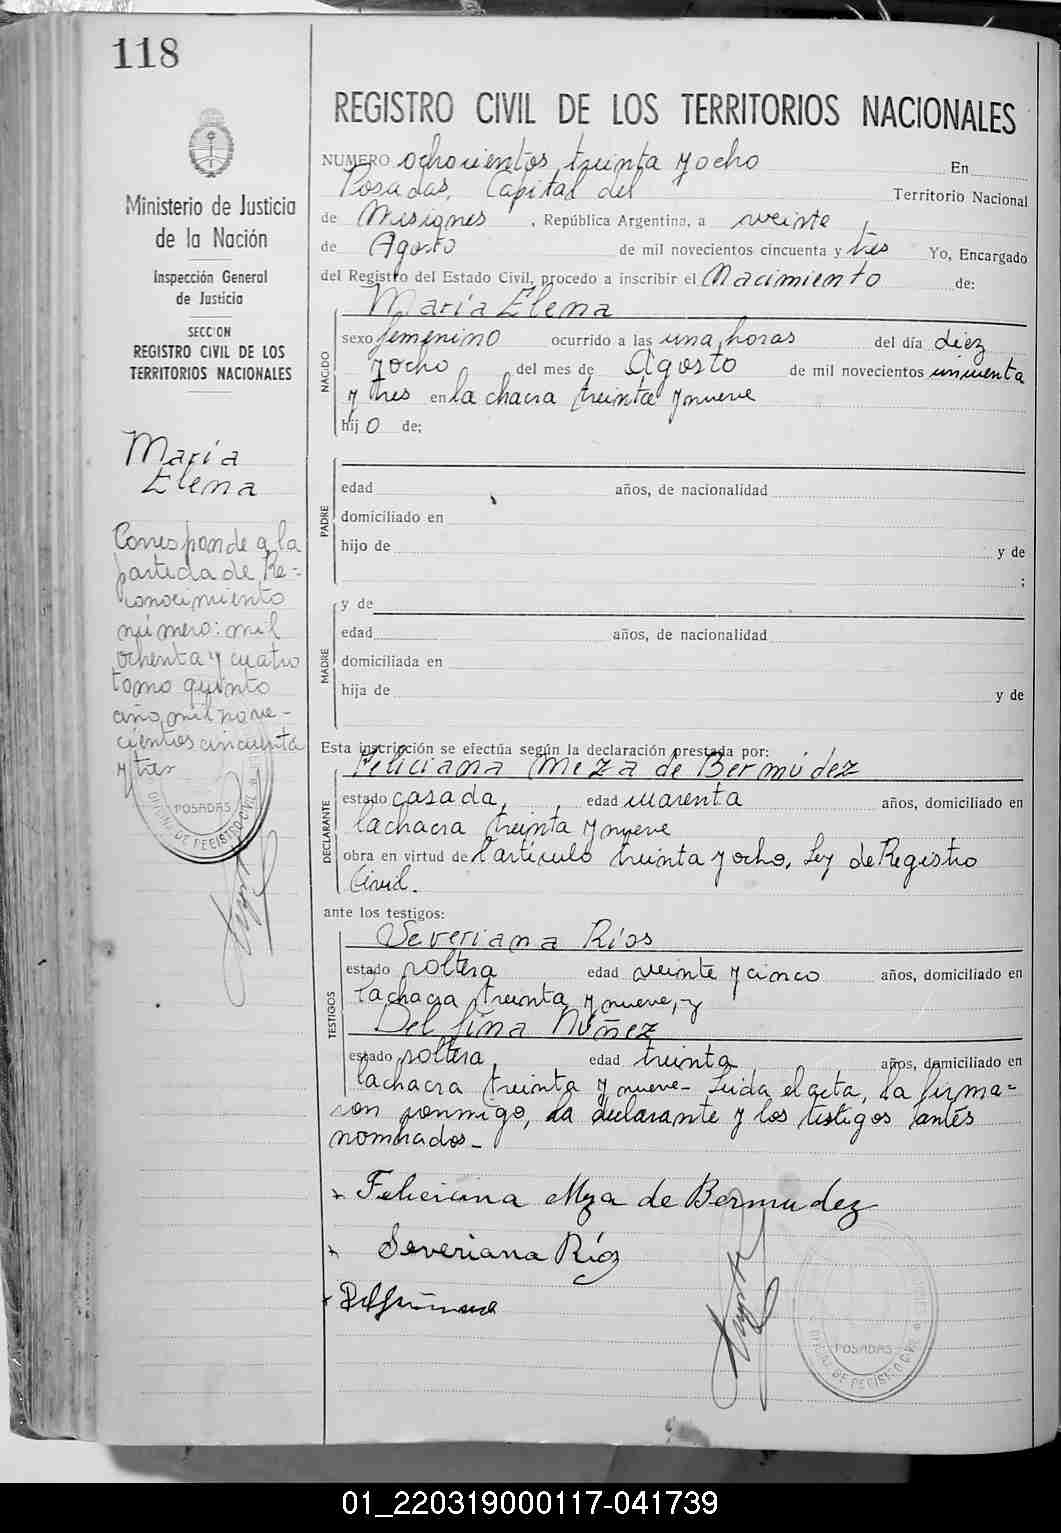 118
REGISTRO CIVIL DE LOS TERRITORIOS NACIONALES
NUMERO ochocientos treinta y ocho En
Posadas, Capital del Territorio Nacional
de Misiones, República Argentina, a veinte
de Agosto de mil novecientos cincuenta y tres Yo, Encargado
del Registro del Estado Civil, procedo a inscribir el Nacimiento de:
Ministerio de Justicia
de la Nación
Inspección General
de Justicia
SECCION
REGISTRO CIVIL DE LOS
TERRITORIOS NACIONALES
María
Elena
Corresponde a la
partida de Re-
conocimiento
número: mil
ochenta y cuatro
tomo quinto
año mil nove-
cientos cincuenta
y tres
POSADAS
OFICINA DE REGISTRO CIVIL
NACIDO
María Elena
sexo femenino ocurrido a las una horas del día diez
y ocho del mes de Agosto de mil novecientos cincuenta
y tres en la chacra treinta y nueve
hij o de:
PADRE
edad años, de nacionalidad
domiciliado en
hijo de y de
;
MADRE
y de
edad años, de nacionalidad
domiciliada en
hija de y de
Esta inscripción se efectúa según la declaración prestada por:
DECLARANTE
Feliciana Meza de Bermúdez
estado casada, edad cuarenta años, domiciliado en
la chacra treinta y nueve
obra en virtud de l artículo treinta y ocho, Ley de Registro
Civil.
ante los testigos:
TESTIGOS
Severiana Ríos
estado soltera edad veinte y cinco años, domiciliado en
la chacra treinta y nueve, y
Delfina Núñez
estado soltera edad treinta años, domiciliado en
la chacra treinta y nueve- Leida el acta, la firma=
ron conmigo, la declarante y los testigos antes
nombrados-
Feliciana Meza de Bermudez
Severiana Ríos
POSADAS
OFICINA DE REGISTRO CIVIL
01_220319000117-041739